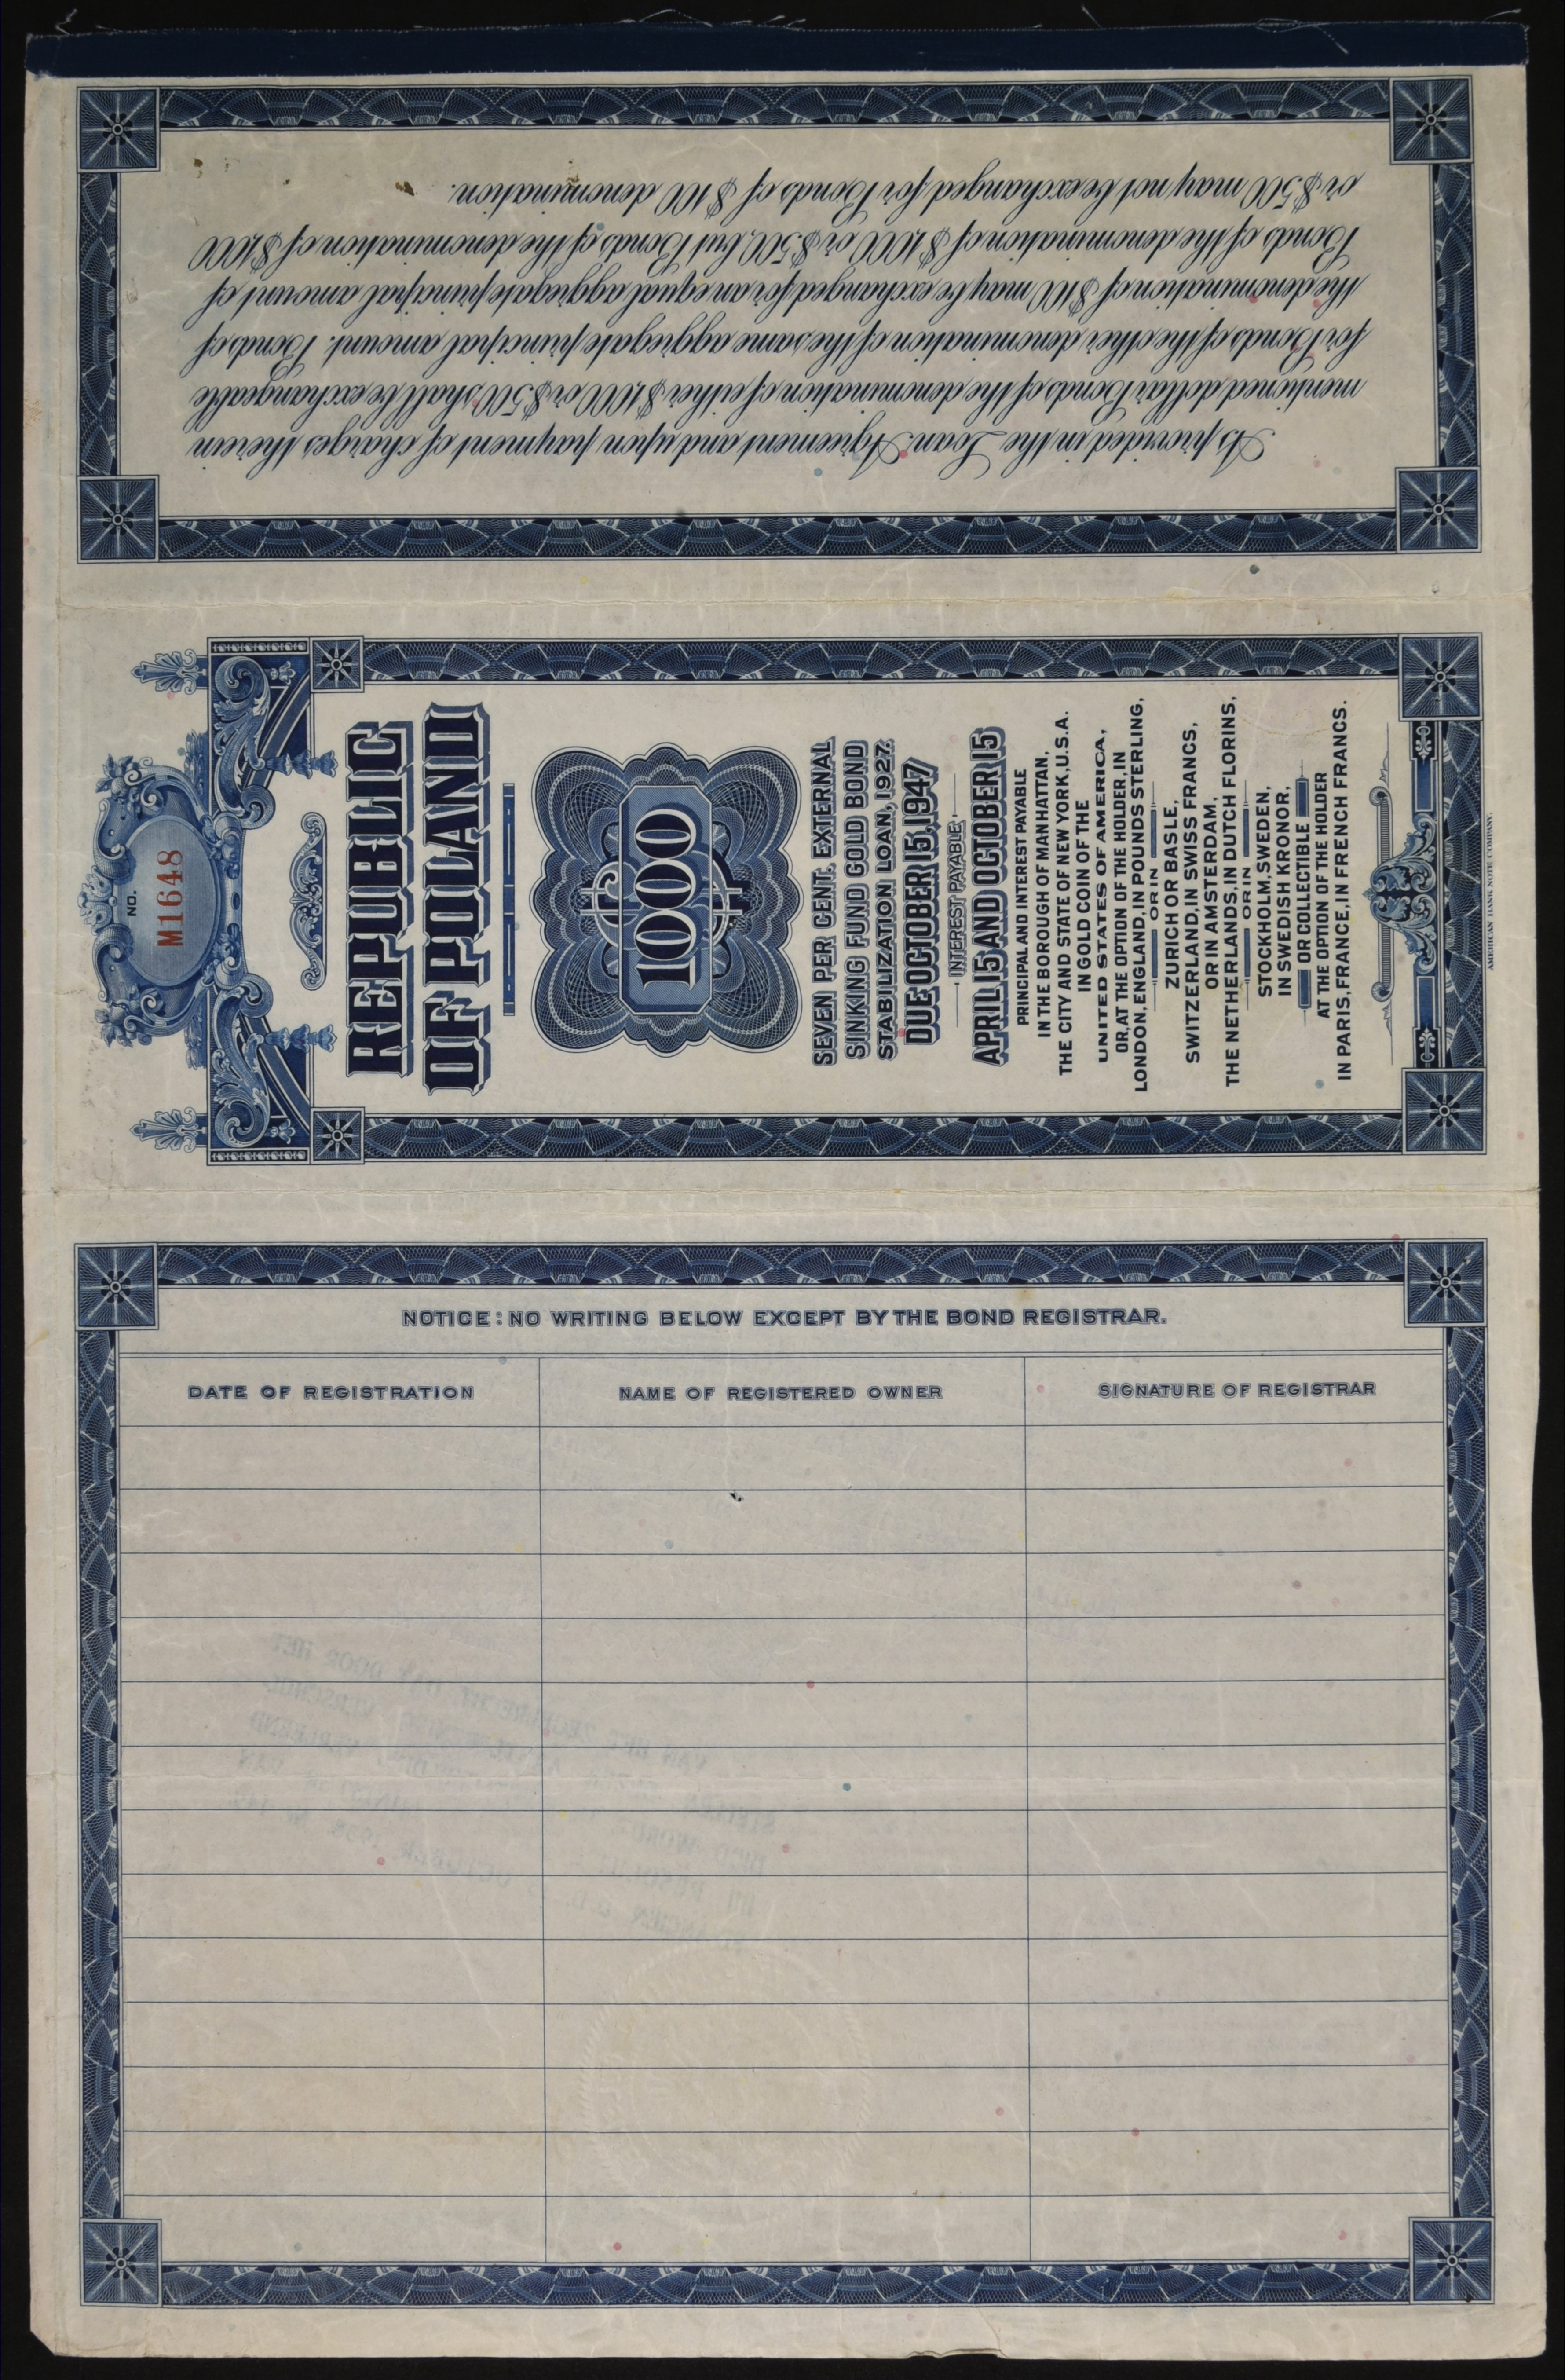 As provided in the Loan Agreement and upon payment of charges therein
mentioned dollar Bonds of the denomination of either $1,000 or $500 shall be exchangeable
for Bonds of the other denomination of the same aggregate principal amount. Bonds of
the denomination of $100 may be exchanged for an equal aggregate principal amount of
Bonds of the denomination of $1,000 or $500, but Bonds of the denomination of $1,000
or $500 may not be exchanged for Bonds of $100 denomination.
NO.
M1648
REPUBLIC
OF POLAND
$1000
SEVEN PER CENT. EXTERNAL
SINKING FUND GOLD BOND
STABILIZATION LOAN, 1927.
DUE OCTOBER 15, 1947
INTEREST PAYABLE
APRIL 15 AND OCTOBER 15
PRINCIPAL AND INTEREST PAYABLE
IN THE BOROUGH OF MANHATTAN,
THE CITY AND STATE OF NEW YORK, U.S.A.
IN GOLD COIN OF THE
UNITED STATES OF AMERICA,
OR, AT THE OPTION OF THE HOLDER, IN
LONDON, ENGLAND, IN POUNDS STERLING,
OR IN
ZURICH OR BASLE,
SWITZERLAND, IN SWISS FRANCS,
OR IN AMSTERDAM,
THE NETHERLANDS, IN DUTCH FLORINS,
OR IN
STOCKHOLM, SWEDEN,
IN SWEDISH KRONOR,
OR COLLECTIBLE
AT THE OPTION OF THE HOLDER
IN PARIS, FRANCE, IN FRENCH FRANCS.
AMERICAN BANK NOTE COMPANY.
NOTICE: NO WRITING BELOW EXCEPT BY THE BOND REGISTRAR.
DATE OF REGISTRATION
NAME OF REGISTERED OWNER
SIGNATURE OF REGISTRAR